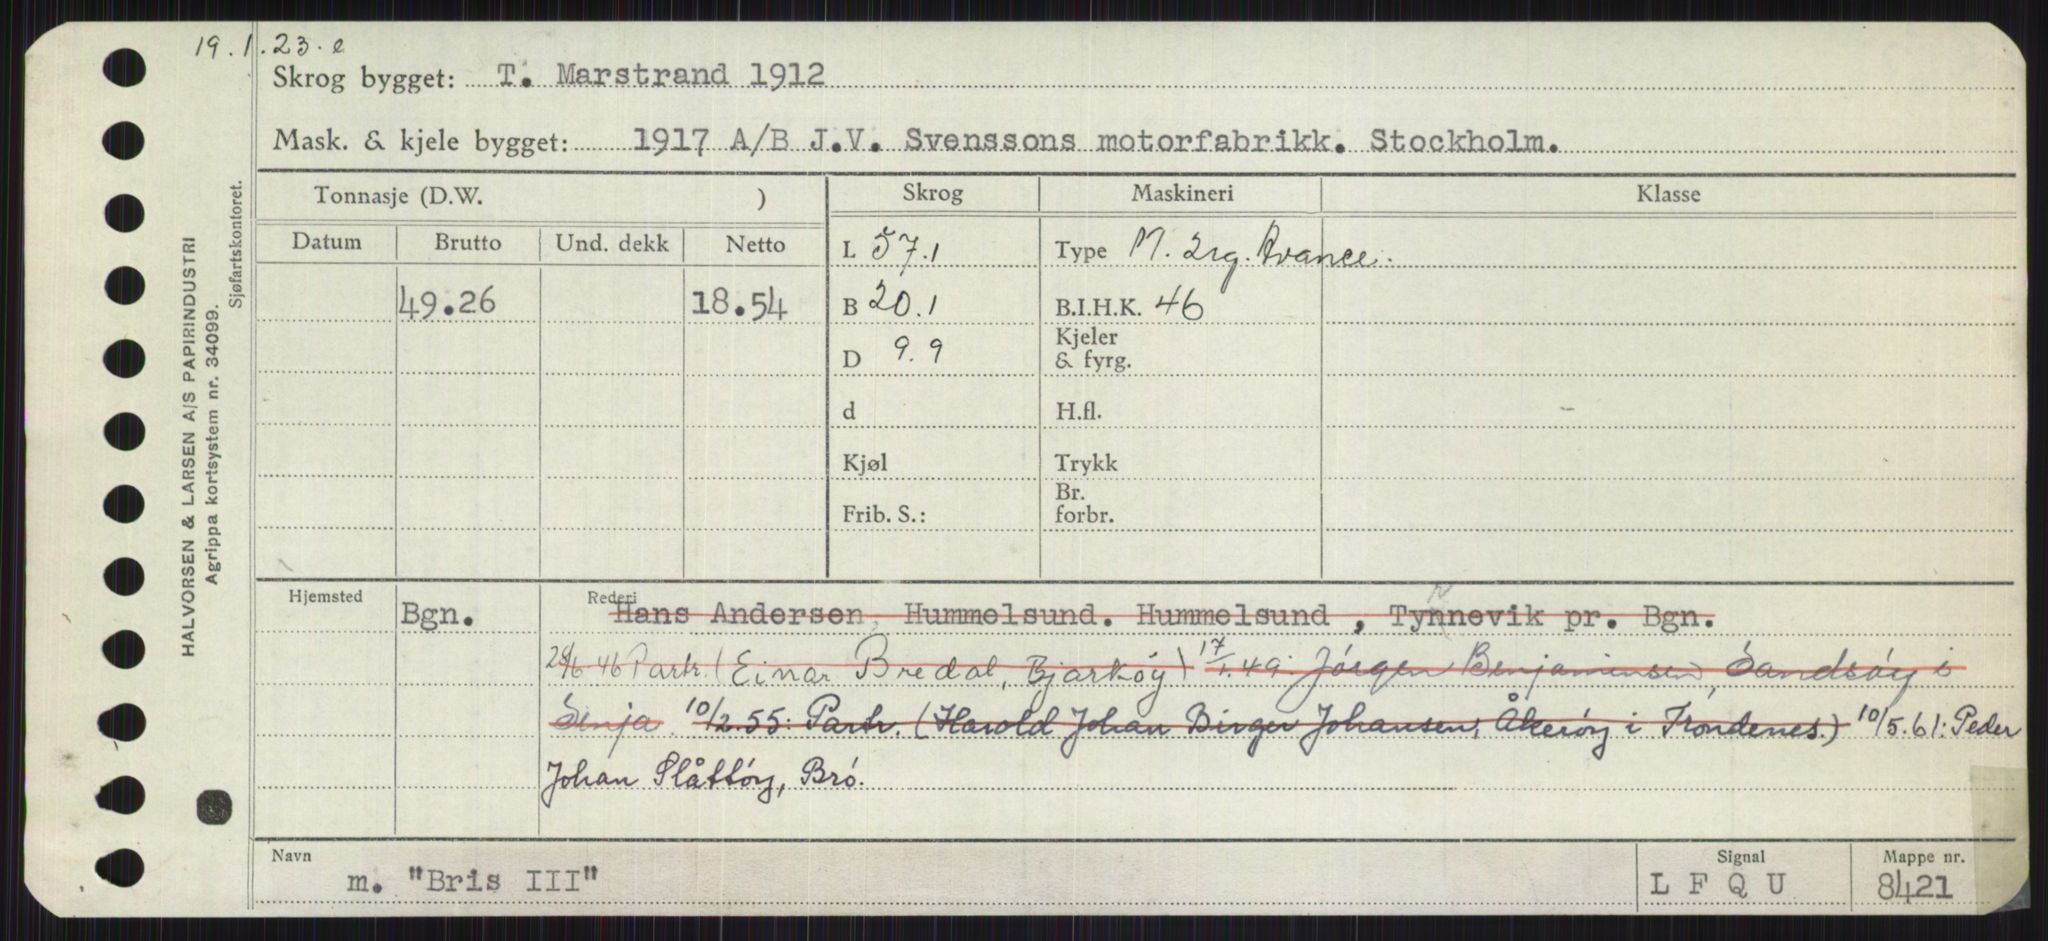 19.1.23.e
Skrog bygget: T. Marstrand 1912
Mask. & kjele bygget: 1917 A/B J.V. Svenssons motorfabrikk. Stockholm.
HALVORSEN & LARSEN A/S PAPIRINDUSTRI
Agrippa kortsystem nr. 34099.
Sjøfartskontoret.
Tonnasje (D.W. ) Skrog Maskineri Klasse
Datum Brutto Und. dekk Netto
L 57.1 Type M. 2rg. Avance.
49.26 18.54 B 20.1 B.I.H.K. 46
D 9.9 Kjeler & fyrg.
d H.fl.
Kjøl Trykk
Frib. S.: Br. forbr.
Hjemsted Bgn. Rederi Hans Andersen, Hummelsund. Hummelsund, Tynnevik pr. Bgn.
28/6-46 Partr. (Einar Bredal, Bjarköy) 17/1.49: Jörgen Benjaminsen, Sandsöy i
Senja. 10/2.55: Partr. (Harold Johan Birger Johansen, Åkeröy i Tróndenes.) 10/5.61: Peder
Johan Slåttöy, Bró.
Navn Signal Mappe nr.
m. "Bris III" L F Q U 8421